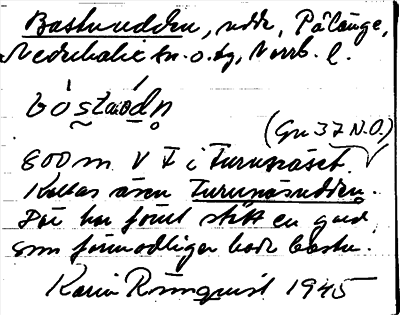 Bastuudden, udde, Pålänge,
Nederkalix sn. o. tg, Norrb. l.
(Gu 37 N.O.)
800 m V I i Furunäset.
Kallas även Furunäsudden.
Där har förut stått en gård
som förmodligen hade bastu.
Karin Rönnquist 1945